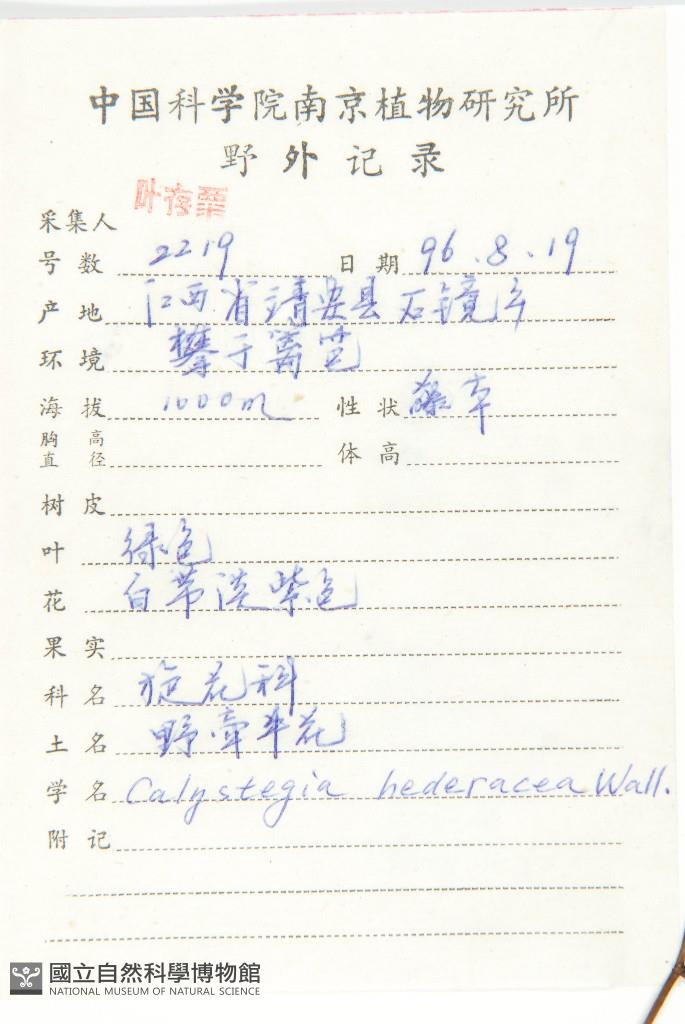 中国科学院南京植物研究所
野外记录
采集人 叶存栗
号数 2219 日期 96.8.19
产地 江西省靖安县石镜乡
环境 攀于篱笆
海拔 1000m 性状 草
胸高直径 体高
树皮
叶 绿色
花 白带淡紫色
果实
科名 旋花科
土名 野牵牛花
学名 Calystegia hederacea Wall.
附记
國立自然科學博物館
NATIONAL MUSEUM OF NATURAL SCIENCE